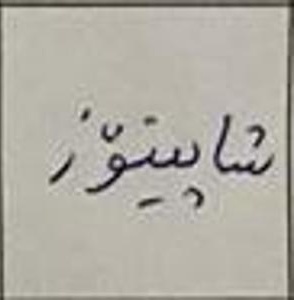 شاپیتۆز